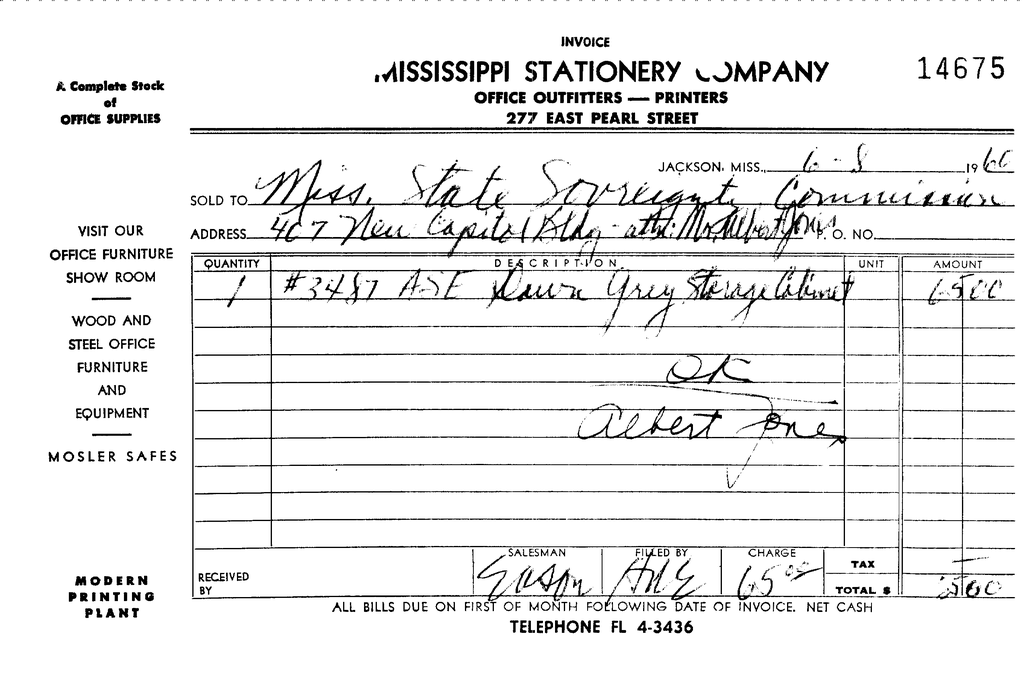 INVOICE
MISSISSIPPI STATIONERY COMPANY 14675
OFFICE OUTFITTERS — PRINTERS
277 EAST PEARL STREET
A Complete Stock
of
OFFICE SUPPLIES
JACKSON, MISS., 6-8 1960
SOLD TO Miss. State Sovreignty Commission
ADDRESS 407 New Capitol Bldg - attn: Mr. Albert Jones P. O. NO.
VISIT OUR
OFFICE FURNITURE
SHOW ROOM
WOOD AND
STEEL OFFICE
FURNITURE
AND
EQUIPMENT
MOSLER SAFES
QUANTITY DESCRIPTION UNIT AMOUNT
1 #3487 ASE Dawn Grey Storage Cabinet 65 00
OK
Albert Jones
MODERN
PRINTING
PLANT
RECEIVED
BY
SALESMAN FILLED BY CHARGE TAX —
Eason 65 00 TOTAL $ 65 00
ALL BILLS DUE ON FIRST OF MONTH FOLLOWING DATE OF INVOICE. NET CASH
TELEPHONE FL 4-3436